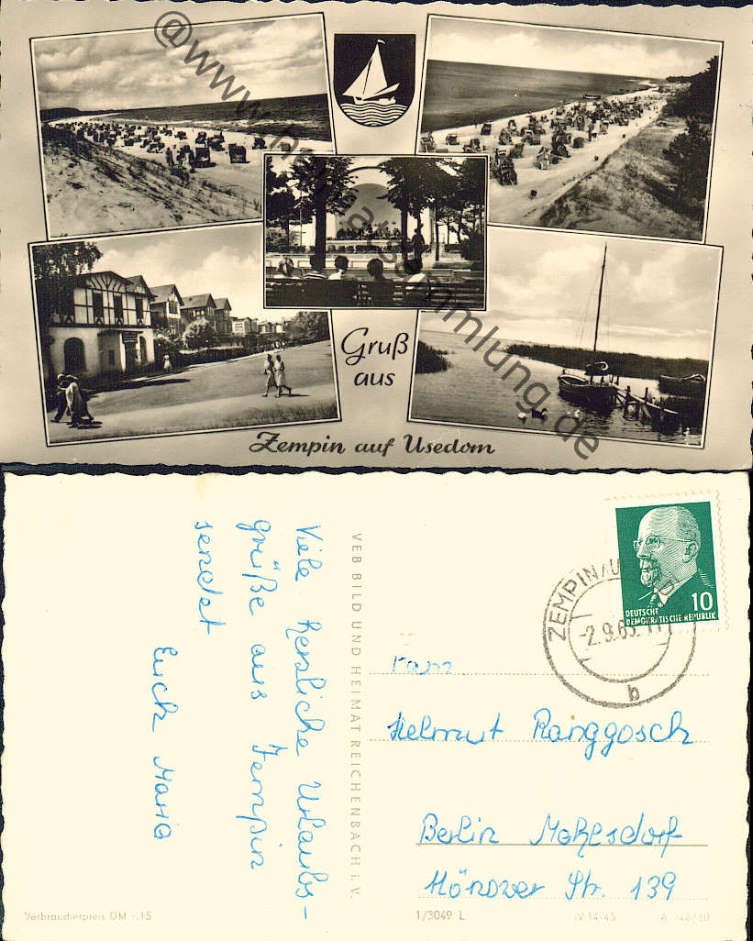 Gruß
aus
Zempin auf Usedom
Viele herzliche Urlaubs-
grüße aus Zempin
sendet
Euch Maria
VEB BILD UND HEIMAT REICHENBACH I. V.
DEUTSCHE
DEMOKRATISCHE REPUBLIK
10
ZEMPIN
-2.9.63
b
Fam.
Helmut Ranggosch
Berlin Mahlsdorf
Hönower Str. 139
Verbraucherpreis DM -.15
1/3049 L